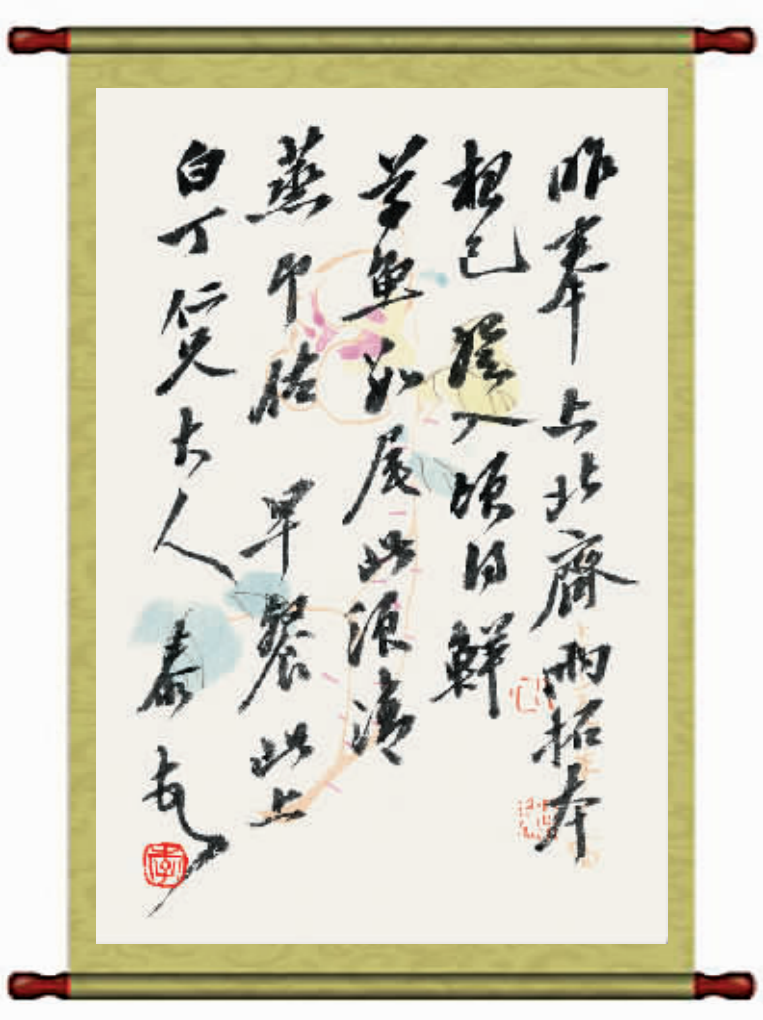 昨奉上北齋兩拓本
想已登入頃得鮮
草魚如尾此須清
蒸即佐 早餐此上
白丁仁兄大人 泰友